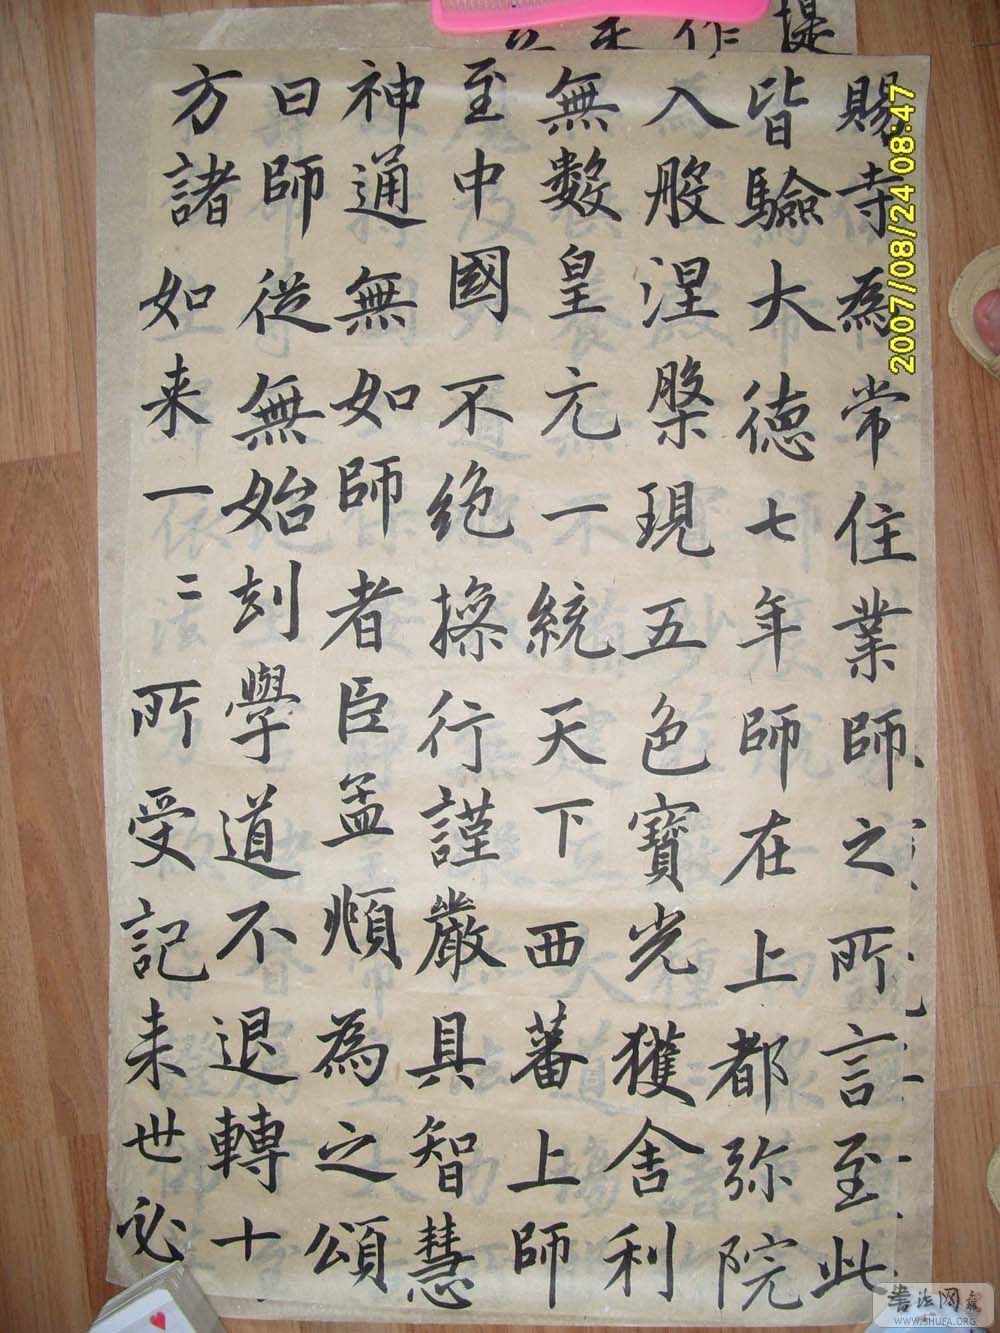 賜寺為常住業師之所言至此
皆驗大德七年師在上都弥院
入般涅槃現五色寶光獲舍利
無數皇元一統天下西蕃上師
至中國不絕操行謹嚴具智慧
神通無如師者臣孟頫為之頌
曰師從無始刼學道不退轉十
方諸如来一二所受記来世必
作提
2007/08/24 08:47
書法网
WWW.SHUFA.ORG